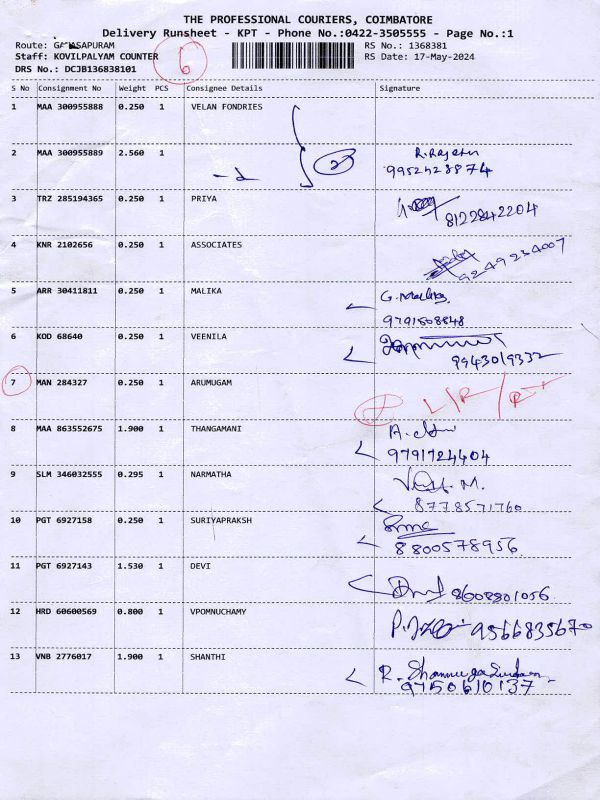 THE PROFESSIONAL COURIERS, COIMBATORE
Delivery Runsheet - KPT - Phone No.:0422-3505555 - Page No.:1
Route: GANASAPURAM
RS No.: 1368381
Staff: KOVILPALYAM COUNTER
6
RS Date: 17-May-2024
DRS No.: DCJB136838101
S No Consignment No Weight PCS Consignee Details Signature
1 MAA 300955888 0.250 1 VELAN FONDRIES
2 MAA 300955889 2.560 1
2
9952428874
3 TRZ 285194365 0.250 1 PRIYA
8122842204
4 KNR 2102656 0.250 1 ASSOCIATES
9249234007
5 ARR 30411811 0.250 1 MALIKA
9791508848
6 KOD 68640 0.250 1 VEENILA
9943019332
7 MAN 284327 0.250 1 ARUMUGAM
8 MAA 863552675 1.900 1 THANGAMANI
9791724404
9 SLM 346032555 0.295 1 NARMATHA
8778571760
10 PGT 6927158 0.250 1 SURIYAPRAKSH
8800578956
11 PGT 6927143 1.530 1 DEVI
8608801056
12 HRD 60600569 0.800 1 VPOMNUCHAMY
9566835670
13 VNB 2776017 1.900 1 SHANTHI
9750610137